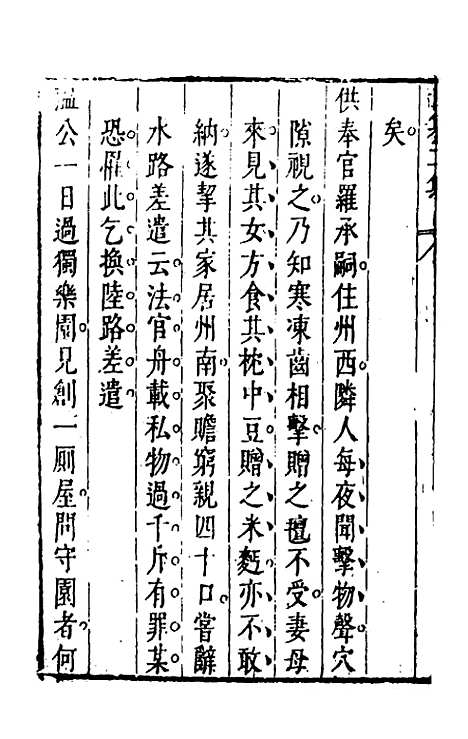 矣。
供奉官羅承嗣。住州西。隣人每夜聞擊物聲。穴
隙視之。乃知寒凍齒相擊。贈之氊不受。妻母
來見其女方食其枕中豆。贈之米麪亦不敢
納。遂挈其家居州南。聚贍窮親四十口。嘗辭
水路差遣云。法官舟載私物過千斤有罪。某
恐罹此。乞換陸路差遣。
溫公一日過獨樂園。見創一厠屋。問守園者何